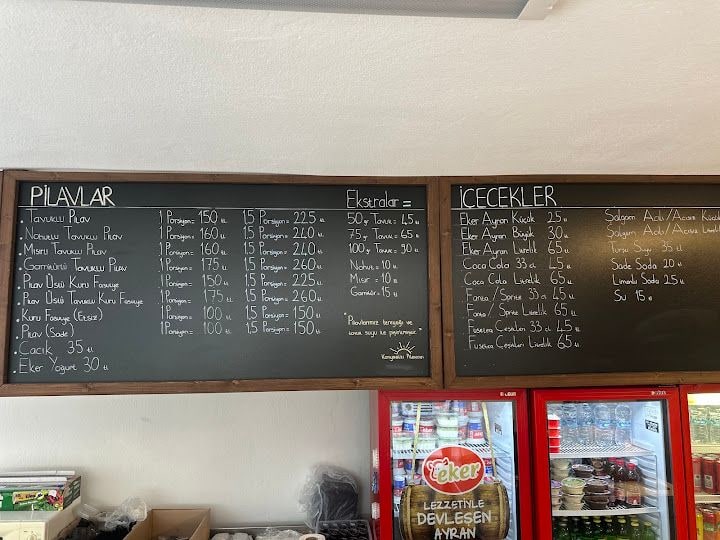 PİLAVLAR
. Tavuklu Pilav 1 Porsiyon = 150 TL 1.5 Porsiyon = 225 TL
. Nohutlu Tavuklu Pilav 1 Porsiyon = 160 TL 1.5 Porsiyon = 240 TL
. Mısırlı Tavuklu Pilav 1 Porsiyon = 160 TL 1.5 Porsiyon = 240 TL
. Garnitürlü Tavuklu Pilav 1 Porsiyon = 175 TL 1.5 Porsiyon = 260 TL
. Pilav Üstü Kuru Fasulye 1 Porsiyon = 150 TL 1.5 Porsiyon = 225 TL
. Pilav Üstü Tavuklu Kuru Fasulye 1 Porsiyon = 175 TL 1.5 Porsiyon = 260 TL
. Kuru Fasulye (Etsiz) 1 Porsiyon = 100 TL 1.5 Porsiyon = 150 TL
. Pilav (Sade) 1 Porsiyon = 100 TL 1.5 Porsiyon = 150 TL
. Cacık 35 TL
. Eker Yoğurt 30 TL
Ekstralar =
50 gr Tavuk = 45 TL
75 gr Tavuk = 65 TL
100 gr Tavuk = 90 TL
Nohut = 10 TL
Mısır = 10 TL
Garnitür = 15 TL
"Pilavlarımız tereyağı ve
tavuk suyu ile yapılmıştır."
İÇECEKLER
Eker Ayran Küçük 25 TL
Eker Ayran Büyük 30 TL
Eker Ayran Litrelik 65 TL
Coca Cola 33 cl 45 TL
Coca Cola Litrelik 65 TL
Fanta / Sprite 33 cl 45 TL
Fanta / Sprite Litrelik 65 TL
Fusetea Çeşitleri 33 cl 45 TL
Fusetea Çeşitleri Litrelik 65 TL
Şalgam Acılı/Acısız Küçük
Şalgam Acılı/Acısız Litrelik
Turşu Suyu 35 cl
Sade Soda 20 TL
Limonlu Soda 25 TL
Su 15 TL
eker
LEZZETİYLE
DEVLEŞEN
AYRAN